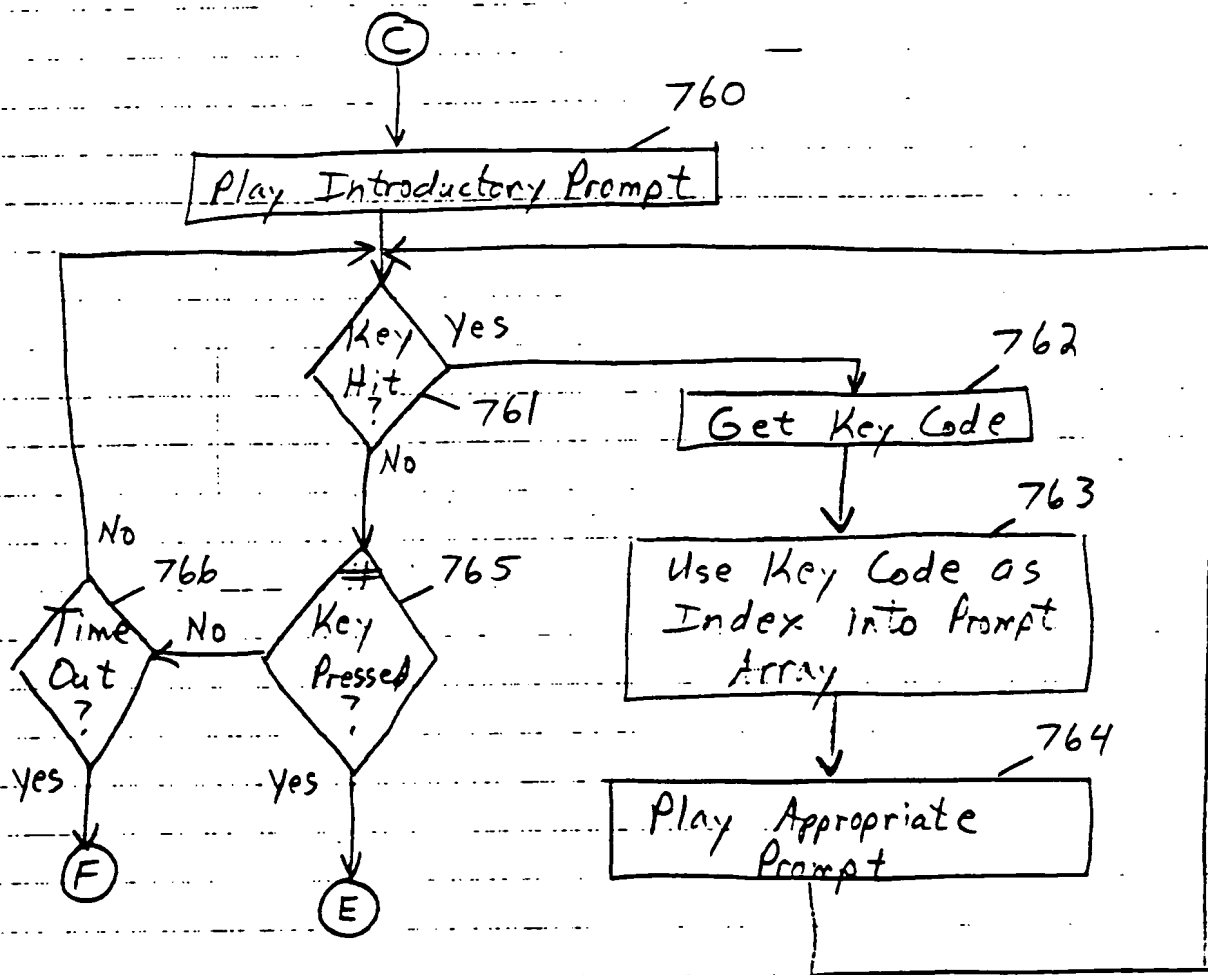 C
760
Play Introductory Prompt
Key
Hit
?
Yes
761
No
762
Get Key Code
763
Use Key Code as
Index into Prompt
Array
764
Play Appropriate
Prompt
#
Key
Pressed
?
765
No
Yes
E
766
Time
Out
?
No
Yes
F